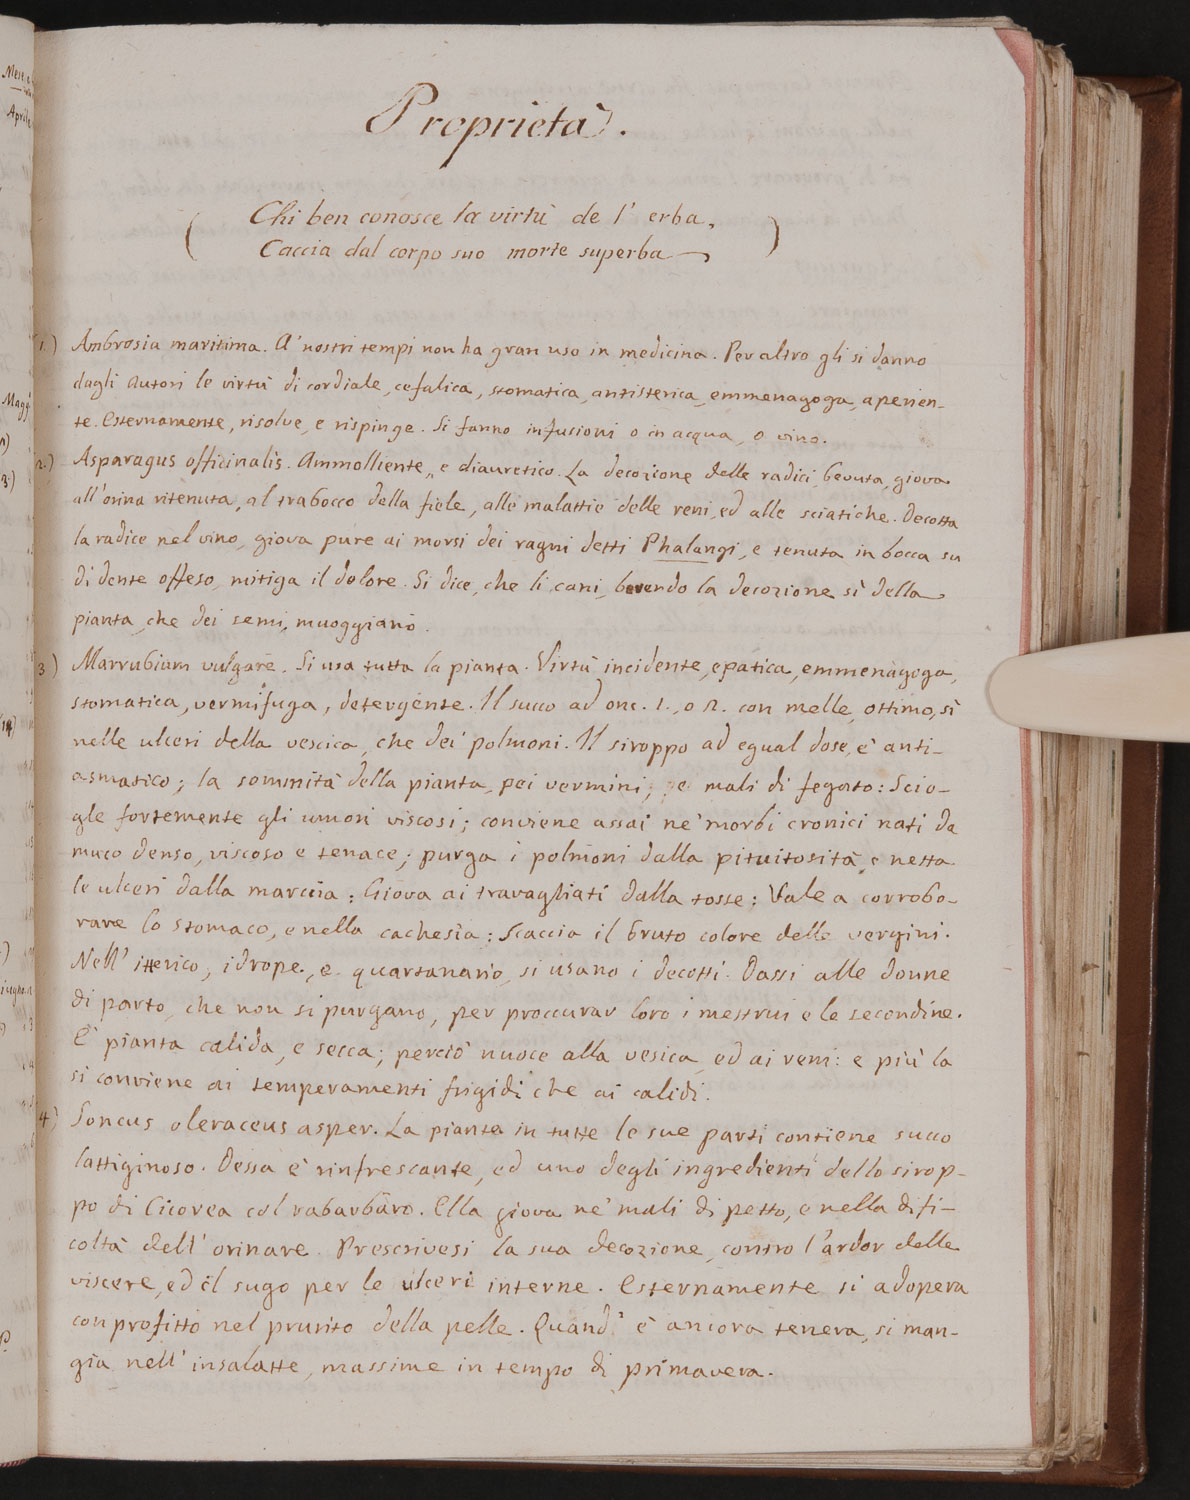 Proprietà.
( Chi ben conosce la virtù de l' erba,
Caccia dal corpo suo morte superba )
1.) Ambrosia maritima. A' nostri tempi non ha gran uso in medicina. Per altro gli si danno
dagli Autori le virtù di cordiale, cefalica, stomatica, antisterica, emmenagoga, aperien-
te. Esternamente, risolve, e rispinge. Si fanno infusioni o in acqua, o vino.
2.) Asparagus officinalis. Ammolliente, e diauretico. La decozione delle radici bevuta, giova
all'orina ritenuta, al trabocco della fiele, alle malattie delle reni, ed alle sciatiche. Decotta
la radice nel vino, giova pure ai morsi dei ragni detti Phalangi, e tenuta in bocca su
di dente offeso, mitiga il dolore. Si dice, che li cani, bevendo la decozione sì della
pianta, che dei semi, muoggiano.
3) Marrubium vulgare. Si usa tutta la pianta. Virtù incidente, epatica, emmenagoga,
stomatica, vermifuga, detergente. Il succo ad onc. 1., o 2. con melle, ottimo, sì
nelle ulceri della vescica, che dei polmoni. Il siroppo ad egual dose, è anti-
asmatico; la sommità della pianta, pei vermini, e mali di fegato: Scio-
gle fortemente gli umori viscosi; conviene assai ne' morbi cronici nati da
muco denso, viscoso e tenace; purga i polmoni dalla pituitosità, e netta
le ulceri dalla marcia: Giova ai travagliati dalla tosse: Vale a corrobo-
rare lo stomaco, e nella cachesia: Scaccia il bruto colore delle vergini.
Nell' itterico, idrope, e quartanario, si usano i decotti. Dassi alle donne
di parto, che non si purgano, per proccurar loro i mestrui e le secondine.
E' pianta calida, e secca; perciò nuoce alla vesica, ed ai reni: e più la
si conviene ai temperamenti frigidi che ai calidi.
4) Soncus oleraceus asper. La pianta in tutte le sue parti contiene succo
lattiginoso. Dessa è rinfrescante, ed uno degli ingredienti dello sirop-
po di Cicorea col rabarbaro. Ella giova ne' mali di petto, e nella difi-
coltà dell' orinare. Prescrivesi la sua decozione, contro l'ardor delle
viscere, ed il sugo per le ulceri interne. Esternamente si adopera
con profitto nel prurito della pelle. Quand' è ancora tenera, si man-
gia nell' insalatte, massime in tempo di primavera.